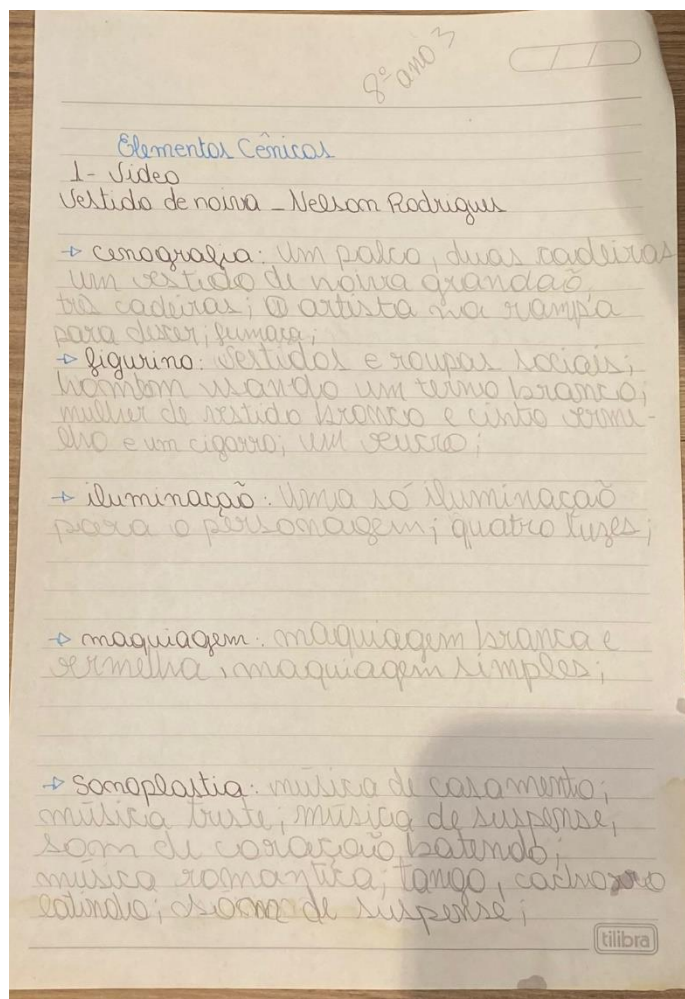 8º ano 3
Elementos Cênicos
1- Vídeo
Vestido de noiva - Nelson Rodrigues
→ cenografia: Um palco, duas cadeiras
um vestido de noiva grandão
três cadeiras; O artista na rampa
para descer; fumaça;
→ figurino: Vestidos e roupas sociais;
homem usando um terno branco;
mulher de vestido branco e cinto verme-
lho e um cigarro; um
→ iluminação: Uma só iluminação
para o personagem; quatro luzes;
→ maquiagem: maquiagem branca e
vermelha, maquiagem simples;
→ sonoplastia: música de casamento;
música triste; música de suspense;
som de coração batendo;
música romantica; tango, cachorro
latindo; som de suspense;
tilibra